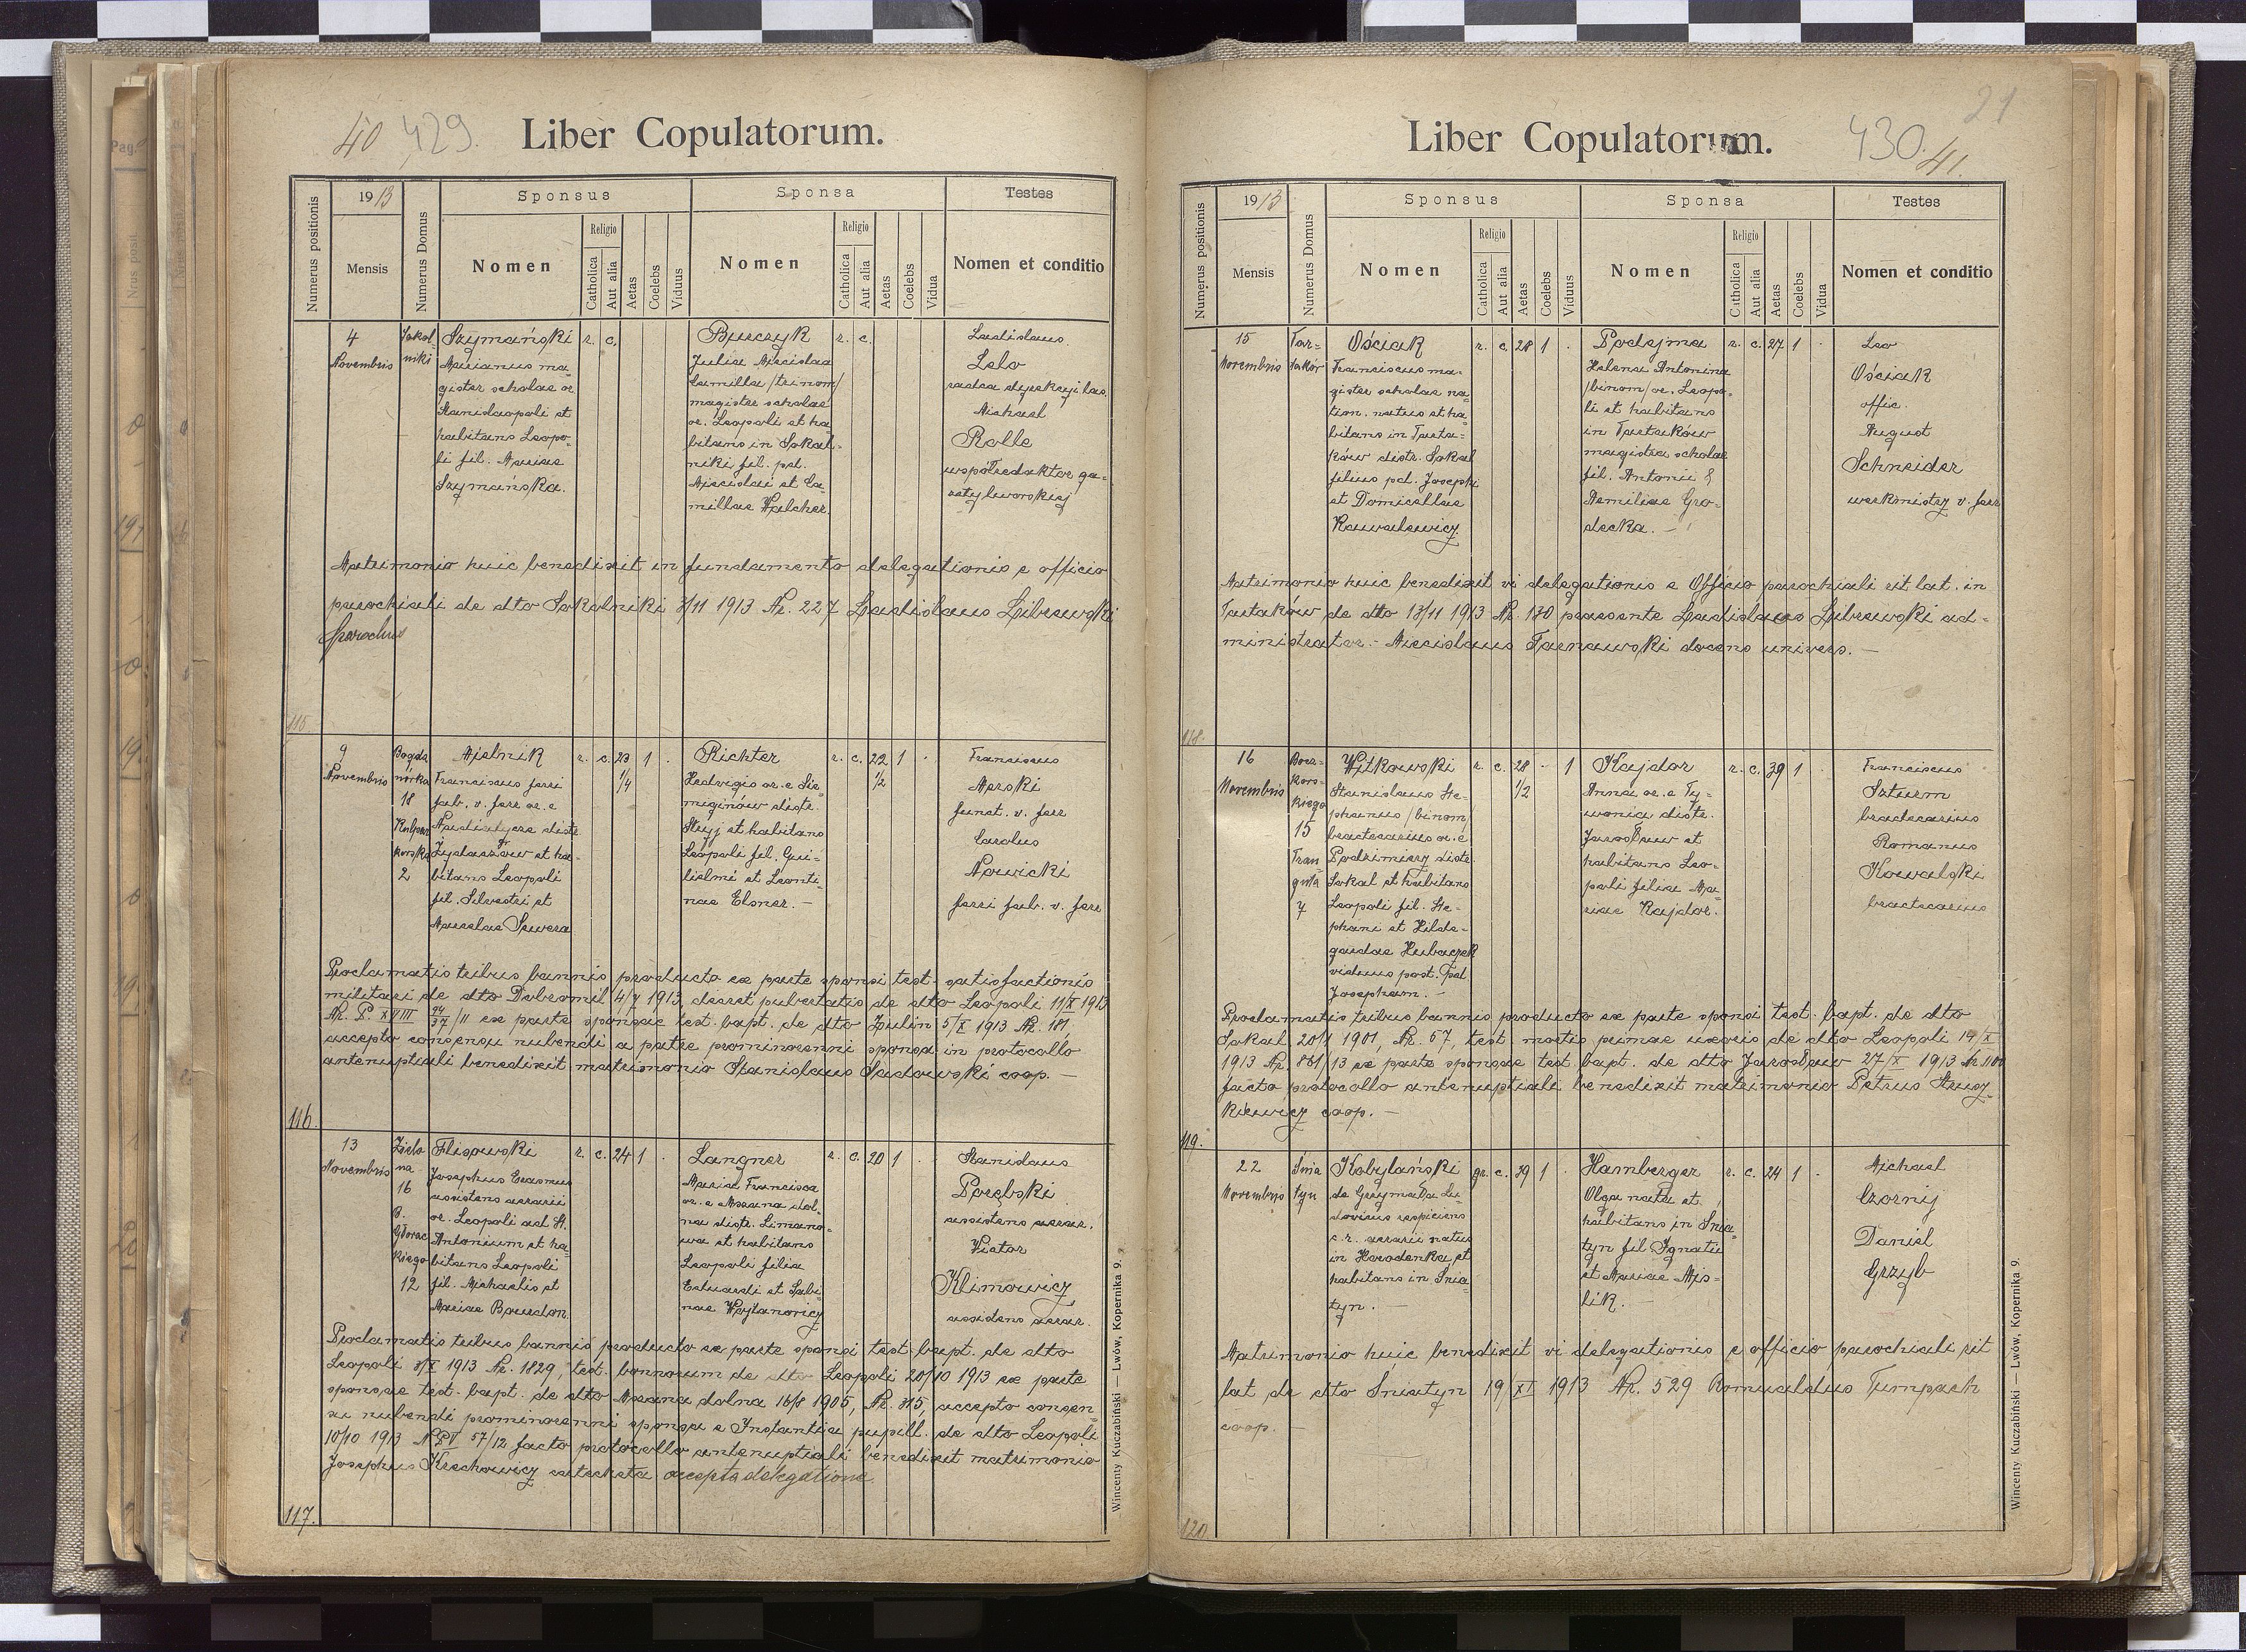 40 429.
Liber Copulatorum.
Numerus positionis
1913
Mensis
Numerus Domus
Sponsus
Nomen
Religio
Catholica
Aut alia
Aetas
Coelebs
Viduus
Sponsa
Nomen
Religio
Catholica
Aut alia
Aetas
Coelebs
Vidua
Testes
Nomen et conditio
115
4
Novembris
Sokol-
niki
Szymański
Marianus ma-
gister scholae or.
Stanislaopoli et
habitans Leopo-
li fil. Mariae
Szymańska.
r. c.
Burczyk
Julia Miecislaa
Camilla /trinom/
magistra scholae
or. Leopoli et ha-
bitans in Sokol-
niki fil. pd.
Miecislai et Ca-
millae Walcher.
r. c.
Ladislaus
Lelo
radca dyrekcyi las.
Michael
Rolle
współredaktor ga-
zety lwowskiej
Matrimonio huic benedixit in fundamento delegationis e officio
parochiali de dto Sokolniki 3/11 1913 Nr. 227 Ladislaus Librewski
Parochus
116.
9
Novembris
Bogda
nówka
18
Kulpar
kowska
2
Mielnik
Franciscus ferri
fab. v. ferr or. e
distr
Żydaczów et ha-
bitans Leopoli
fil. Silvestri et
r. c. 23 1 .
1/4
Richter
Hedvigis or. e Sie-
miginów distr.
Stryj et habitans
Leopoli fil. Gui-
lielmi et Leonti-
nae Elsner. –
r. c. 22 1 .
1/2
Franciscus
Merski
funct. v. ferr
Carolus
Nowicki
ferri fab. v. ferr
Proclamatis tribus bannis producto ex parte sponsi test. satisfactionis
militari de dto Dobromil 4/7 1913, decret pubertatis de dto Leopoli 11/X 1913
Nr. P. XVIII 94/37 /11 ex parte sponsae test. bapt. de dto Żulin 5/X 1913 Nr. 181
accepto consensu nubendi a patre prominorenni sponsa in protocollo
antenuptiali benedixit matrimonio Stanislaus Sadowski coop. –
117.
13
Novembris
Zielo
na
16
B.
Głowac
kiego
12
Flisowski
Josephus Erasmus
assistens aerarii
or. Leopoli ad St.
Antonium et ha-
bitans Leopoli
fil. Michaelis et
Mariae Bourdon.
r. c. 24 1 .
Langner
Maria Francisca
or. e Mszana dol-
na distr. Limano-
wa et habitans
Leopoli filia
Eduardi et Sabi-
nae Wojtanowicz
r. c. 20 1 .
Stanislaus
Porębski
assistens aerar.
Viator
Klimowicz
assistens aerar.
Proclamatis tribus bannis producto ex parte sponsi test. bapt. de dto
Leopoli 8/X 1913 Nr. 1829, test. bannorum de dto Leopoli 20/10 1913 ex parte
sponsae test. bapt. de dto Mszana dolna 16/8 1905, Nr. 315, accepto consen-
su nubendi prominorenni sponsa e Instantia pupill. de dto Leopoli
10/10 1913 57/12 facto protocollo antenuptiali benedixit matrimonio
Josephus Krechowicz catecheta accepta delegatione.
Wincenty Kuczabiński — Lwów, Kopernika 9.
21
Liber Copulatorum.
430. 41.
Numerus positionis
1913
Mensis
Numerus Domus
Sponsus
Nomen
Religio
Catholica
Aut alia
Aetas
Coelebs
Viduus
Sponsa
Nomen
Religio
Catholica
Aut alia
Aetas
Coelebs
Vidua
Testes
Nomen et conditio
118.
15
Novembris
Tar-
taków
Ościak
Franciscus ma-
gister scholae na-
tion. natus et ha
bitans in Tarta-
ków distr. Sokal
filius pd. Josephi
et Domicellae
Kowalewicz.
r. c. 28 1 .
Podejma
Helena Antonina
/binom/ or. Leopo-
li et habitans
in Tartaków
magistra scholae
fil. Antonii &
Aemiliae Gro-
decka. –
r. c. 27 1 .
Leo
Ościak
offic.
August
Schneider
werkmistrz v. ferr
Matrimonio huic benedixit vi delegationis e Officio parochiali rit lat. in
Tartaków de dto 13/11 1913 Nr. 130 praesente Ladislaus Librewski ad-
ministrator. – Miecislaus Tarnawski docens univers. –
119.
16
Novembris
15
7
Witkowski
Stanislaus Ste-
phanus /binom/
bractearius or. e
Podzimierz distr.
Sokal et habitans
Leopoli fil. Ste-
phani et Hilde-
gardae Hubaczek
viduus post. pd
Josepham. –
r. c. 28 . 1
1/2
Kajdor
Anna or. e Ty-
wonia distr.
Jarosław et
habitans Leo-
poli filia Ma-
riae Kajdor.
r. c. 39 1 .
Franciscus
Szturm
bractearius
Romanus
Kowalski
bractearius
Proclamatis tribus bannis producto ex parte sponsi test. bapt. de dto
Sokal 20/1 1901, Nr. 57, test mortis primae uxoris de dto Leopoli 14/X
1913 Nr. 861/13 ex parte sponsae test bapt. de dto Jarosław 27/X 1913 Nr. 1100
facto protocollo antenuptiali benedixit matrimonio Petrus Strucz-
kiewicz coop. –
120
22
Novembris
Śnia
tyn
Kobylański
de Grzymała Lu-
dovicus respiciens
c. r. aerarii natus
in Horodenka et
habitans in Śnia-
tyn. –
gr. c. 39 1 .
Hamberger
Olga nata et
habitans in Śnia-
tyn fil Ignatii
et Mariae Mis-
lik. –
r. c. 24 1 .
Michael
Czornij
Daniel
Grzyb
Matrimonio huic benedixit vi delegationis e officio parochiali rit
lat de dto Śniatyn 19/XI 1913 Nr. 529 Romualdus Tumpach
coop. –
Wincenty Kuczabiński — Lwów, Kopernika 9.